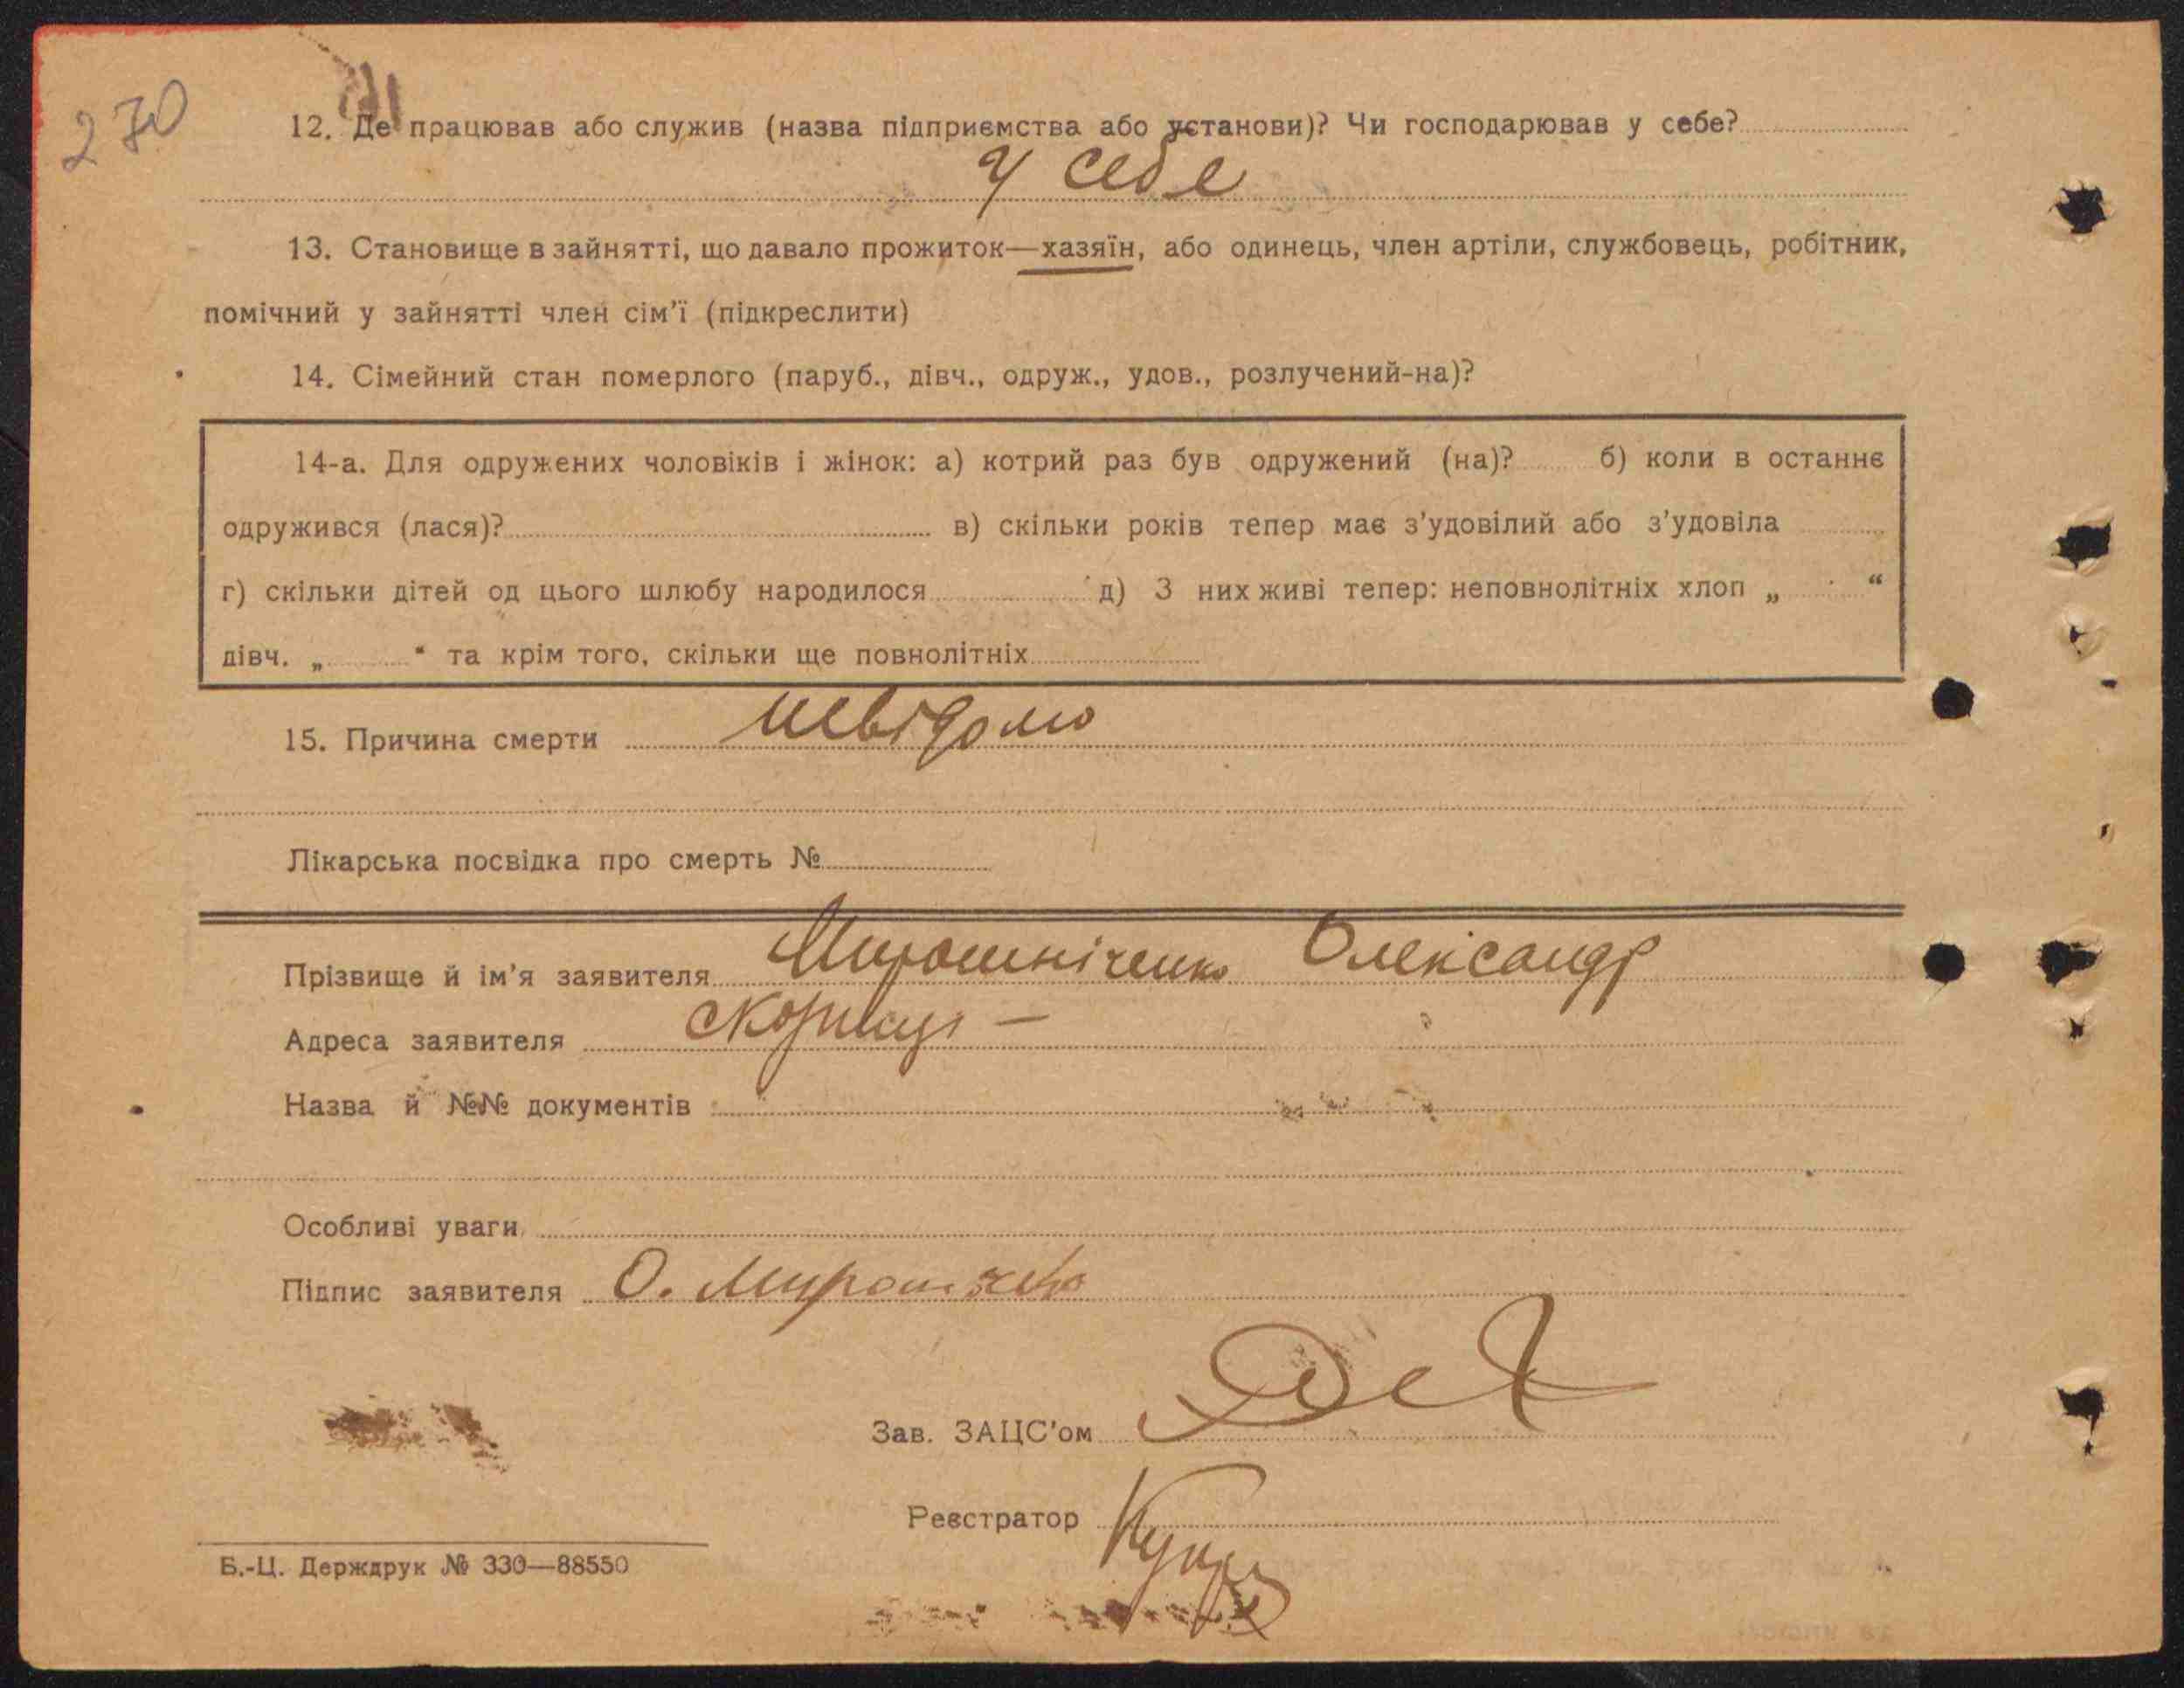 270
12. Де працював або служив (назва підприємства або установи)? Чи господарював у себе?
у себе
13. Становище в зайнятті, що давало прожиток—хазяїн, або одинець, член артіли, службовець, робітник,
помічний у зайнятті член сім’ї (підкреслити)
14. Сімейний стан померлого (паруб., дівч., одруж., удов., розлучений-на)?
14-а. Для одружених чоловіків і жінок: а) котрий раз був одружений (на)? б) коли в останнє
одружився (лася)? в) скільки років тепер має з’удовілий або з’удовіла
г) скільки дітей од цього шлюбу народилося д) З них живі тепер: неповнолітніх хлоп „ “
дівч. „ “ та крім того, скільки ще повнолітніх
15. Причина смерти невідомо
Лікарська посвідка про смерть №
Прізвище й ім’я заявителя Мирошніченко Олександр
Адреса заявителя
Назва й №№ документів
Особливі уваги
Підпис заявителя О. Мирошніченко
Зав. ЗАЦС’ом
Реєстратор
Б.-Ц. Держдрук № 330—88550